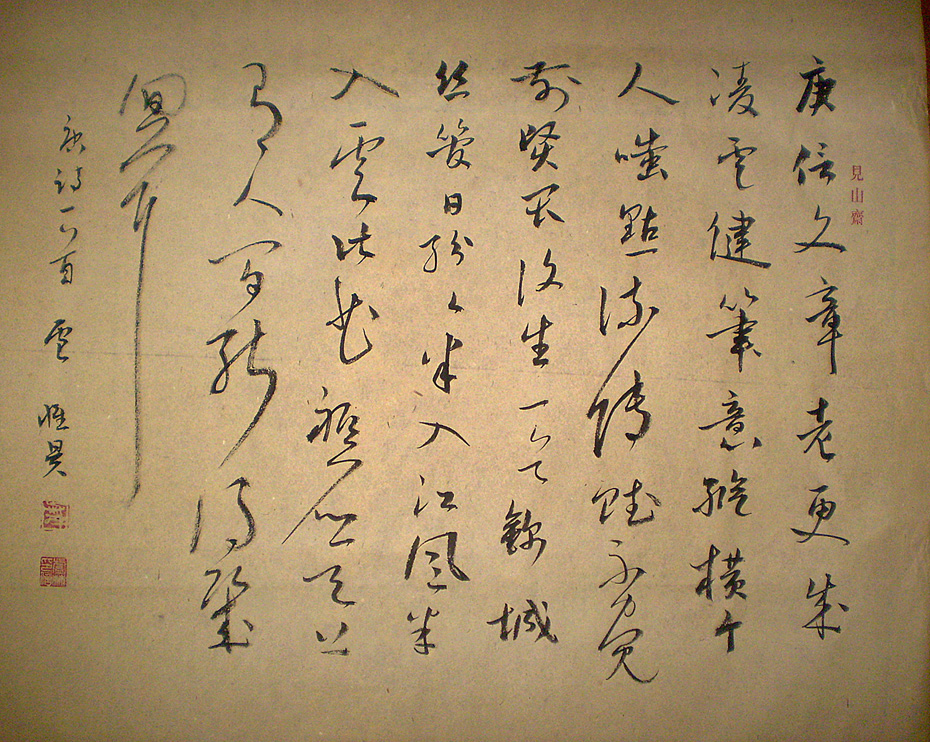 見山齋
庾信文章老更成
凌雲健筆意縱橫今
人嗤點流傳賦不覺
前賢畏後生 錦城
絲管日紛々半入江風半
入雲此曲祇應天上
有人間能得幾
回聞
唐詩二首